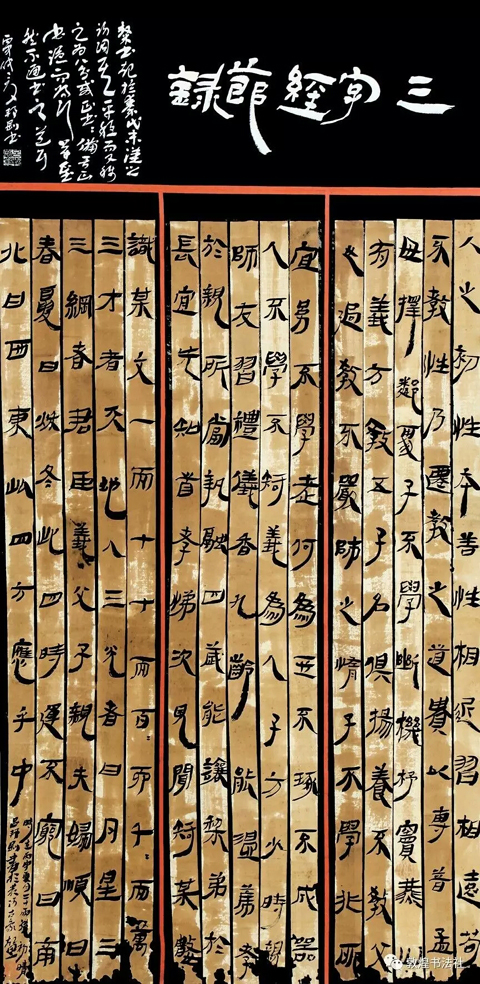 三字經節錄
人之初性本善性相近習相遠苟
不教性乃遷教之道貴以專昔孟
母擇鄰處子不學斷機杼竇燕山
有義方教五子名俱揚養不教父
之過教不嚴師之惰子不學非所
宜幼不學老何為玉不琢不成器
人不學不知義為人子方少時親
師友習禮儀香九齡能溫席孝
於親所當執融四歲能讓梨弟於
長宜先知首孝悌次見聞知某數
識某文一而十十而百百而千千而萬
三才者天地人三光者日月星三
三綱者君臣義父子親夫婦順曰
春夏曰秋冬此四時運不窮曰南
北曰西東此四方應乎中
敦煌书法社